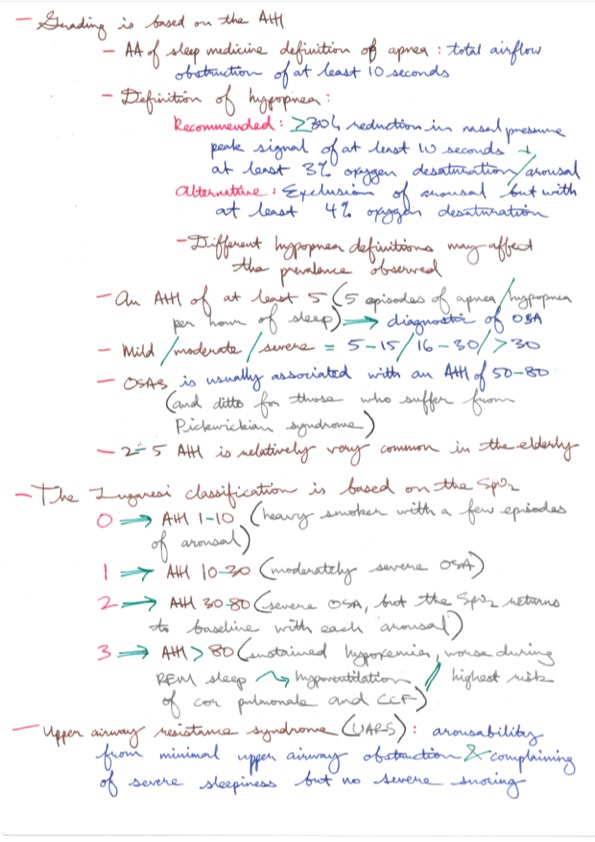 - Grading is based on the AHI
- AA of sleep medicine definition of apnea : total airflow
obstruction of at least 10 seconds
- Definition of hypopnea :
Recommended : ≥30% reduction in nasal pressure
peak signal of at least 10 seconds +
at least 3% oxygen desaturation/arousal
Alternative : Exclusion of arousal but with
at least 4% oxygen desaturation
- Different hypopnea definitions may affect
the prevalence observed
- An AHI of at least 5 (5 episodes of apnea/hypopnea
per hour of sleep) → diagnostic of OSA
- Mild/moderate/severe = 5-15/16-30/>30
- OSAS is usually associated with an AHI of 50-80
(and ditto for those who suffer from
Pickwickian syndrome)
- 2-5 AHI is relatively very common in the elderly
- The Lugaresi classification is based on the SpO2
0 → AHI 1-10 (heavy smoker with a few episodes
of arousal)
1 → AHI 10-30 (moderately severe OSA)
2 → AHI 30-80 (severe OSA, but the SpO2 returns
to baseline with each arousal)
3 → AHI > 80 (sustained hypoxemia, worse during
REM sleep → hypoventilation / highest risk
of cor pulmonale and CCF)
- Upper airway resistance syndrome (UARS) : arousability
from minimal upper airway obstruction & complaining
of severe sleepiness but no severe snoring